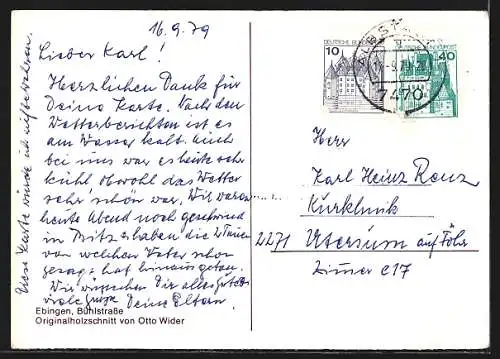 16.9.79
Lieber Karl!
Herzlichen Dank für
Deine Karte. Nach den
Wetterberichten ist es
am Wasser kalt. Auch
bei uns war es heute sehr
kühl obwohl das Wetter
sehr schön war. Wir waren
heute Abend noch geschwind
in
haben die
von welchen Vater schon
gesagt hat hinaus getan.
Wir wünschen Dir alles Gute
viele Grüße Deine Eltern.
Diese Karte würde ich aufbewahren.
Ebingen, Bühlstraße
Originalholzschnitt von Otto Wider
DEUTSCHE BUNDESPOST
10
40
ALBSTADT
7470
Herr
Karl Heinz Renz
Kurklinik
2271 Utersum auf Föhr
Zimmer C17